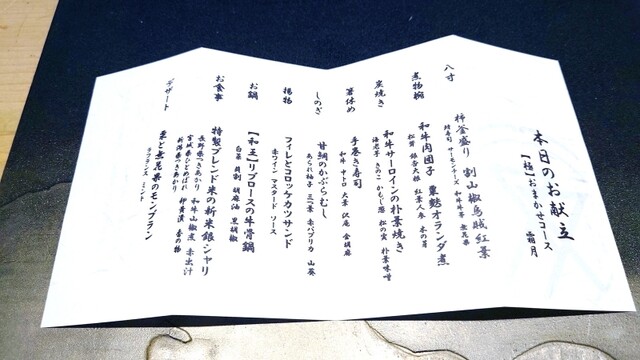 本日のお献立
【極】おまかせコース 霜月
八寸
柿釜盛り 割山椒烏賊紅葉
サーモンチーズ 和牛時雨 無花果
煮物椀
和牛肉団子 粟麩オランダ煮
松茸 銀杏大根 紅葉人参 木の芽
炭焼き
和牛サーロインの朴葉焼き
海老芋 きのこ かもじ葱 松の実 朴葉味噌
箸休め
手巻き寿司
和牛 中トロ 大葉 沢庵 金胡麻
しのぎ
甘鯛のかぶらむし
あられ柚子 三つ葉 赤パプリカ 山葵
揚物
フィレとコロッケカツサンド
赤ワイン マスタード ソース
お鍋
【和王】リブロースの牛骨鍋
白菜 胡麻油 黒胡椒
お食事
特製ブレンド米の新米銀シャリ
長野県つきあかり 和牛山椒煮 赤出汁
宮城県ひとめぼれ 卵黄漬 香の物
新潟県つきあかり
デザート
栗と無花果のモンブラン
ラフランス ミント